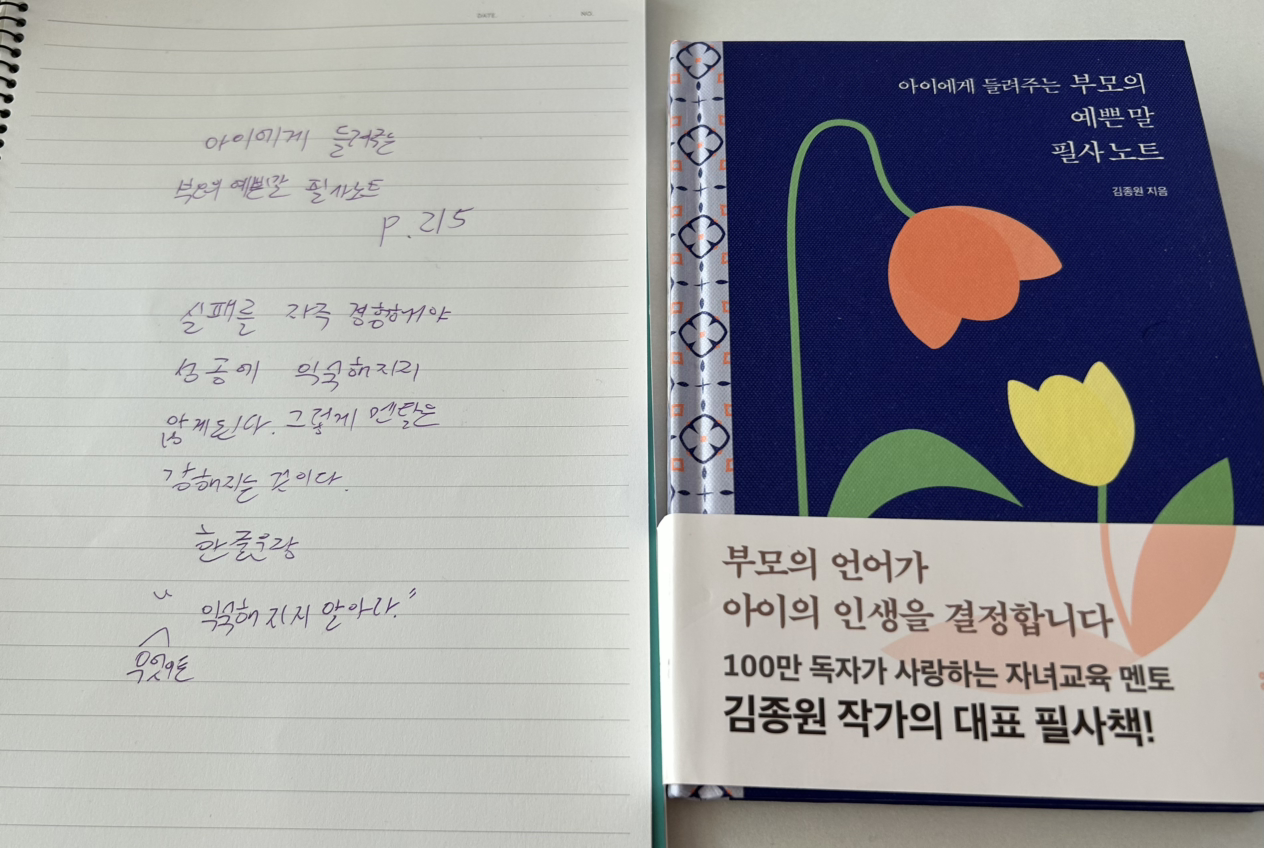 DATE. NO.
아이에게 들려주는
부모의 예쁜말 필사노트
p. 215
실패를 자주 경험해야
성공에 익숙해지지
않게된다. 그렇게 멘탈은
강해지는 것이다.
한 줄요약
" 익숙해 지지 말아라."
무엇이든
아이에게 들려주는 부모의
예쁜 말
필사 노트
김종원 지음
부모의 언어가
아이의 인생을 결정합니다
100만 독자가 사랑하는 자녀교육 멘토
김종원 작가의 대표 필사책!